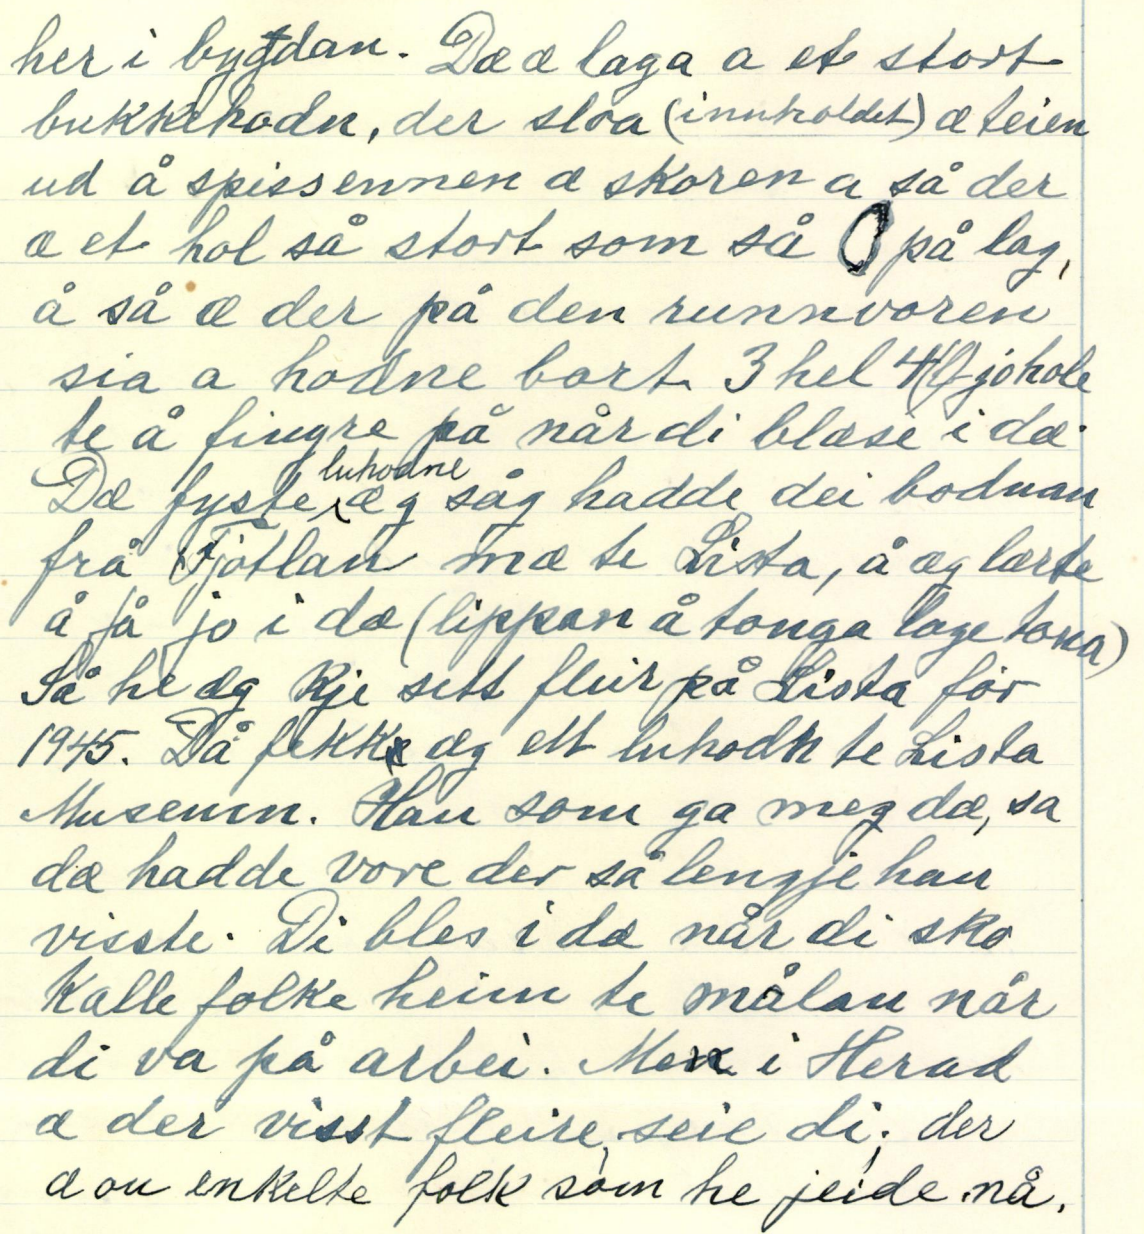 her i bygdan. Dæ æ laga a et stort
bukkehodn, der sloa (innholdet) æ teien
ud å spissennen æ skoren a så der
æ et hol så stort som så O på lag,
å så æ der på den runnvoren
sia a hodne bort 3 hel 4 jo hole
te å fingre på når di blæse i dæ.
Dæ fyste luhodne æg såg hadde dei bodnan
frå Fjotlan mæ te Lista, å æg lærte
å få jo i dæ (lippan å tonga lage tona)
Så he æg kje sett fleir på Lista før
1945. Då fekk æg ett luhodn te Lista
Museum. Han som ga meg dæ, sa
dæ hadde vore der så lengje han
visste. Di bles i dæ når di sko
kalle folke heim te målan når
di va på arbei. Men i Herad
æ der visst fleire, seie di; der
æ ou enkelte folk som he jeide nå.